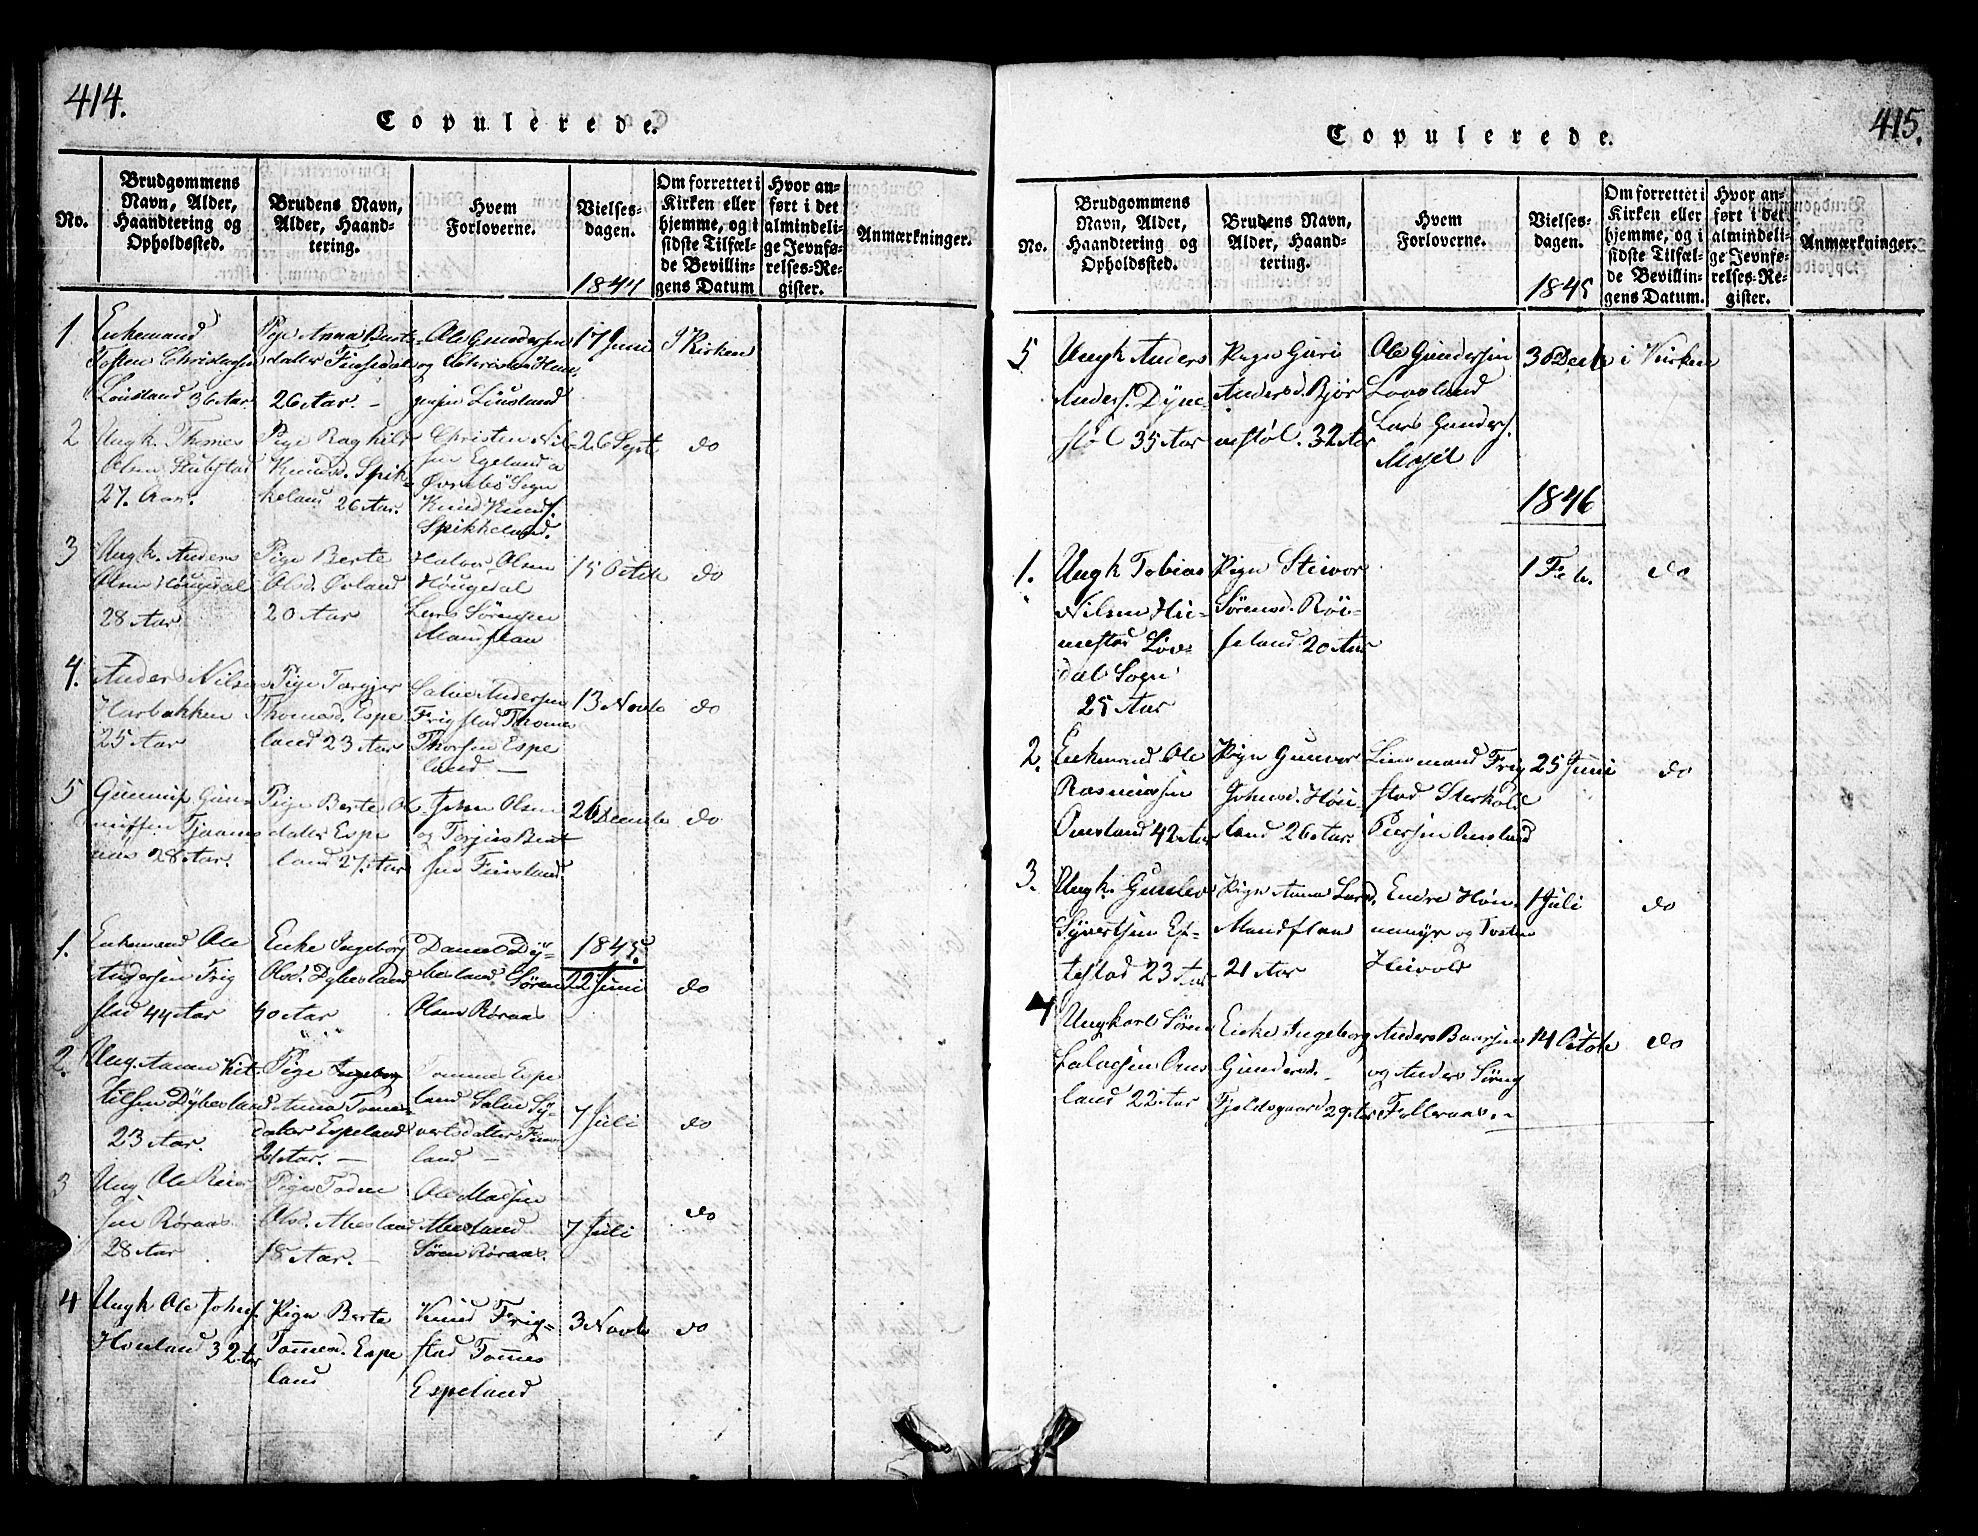 414.
Copulerede.
No.
Brudgommens
Navn, Alder,
Haandtering og
Opholdssted.
Brudens Navn,
Alder, Haand-
tering.
Hvem
Forloverne.
Vielses-
dagen.
Om forrettet i
Kirken eller
hjemme, og i
sidste Tilfæl-
de Bevillin-
gens Datum
Hvor an-
ført i det
almindeli-
ge Jevnfø-
relses-Re-
gister.
Anmærkninger.
1844
1
Enkemand
Tosten Christensen
36 Aar.
Pige Anna Bents
dater Finsdal
26 Aar. -
Ole Gundersen
og
17 Juni
I Kirken
2
Ungk. Thomes
Olsen Stubstad
27. Aar.
Pige Raghild
Knudsd. Spik-
keland 26 Aar.
Christen Nil-
sen Egeland a
Øvrebö Sogn
Knud Knuds.
Spikkeland.
26 Sept
do
3
Ungk. Anders
Olsen Höugdal
28 Aar
Pige Berte
Olsd. Øvland
20 Aar
Halvor Olsen
Höugdal
Lars Sörensen
Monflan
15 Octob
do
4.
Anders Nilsen
Harbakken
25 Aar
Pige Torgjer
Thomesd. Espe
land 23 Aar
Salve Andersen
Frigstad Thomes
Thorsen Espe
land -
13 Novb
do
5
Gunnuf. Gun-
nufsen Tjaam-
naas 28 Aar.
Pige Berte Ols-
dater Espe
land 27. Aar
John Olsen
og Torjus Bent
sen Finsland.
26 Decemb
do
1845.
1.
Enkemand Ole
Andersen Frig
stad 44 Aar
Enke Ingeborg
Olsd. Dybesland
40 Aar
Daniel Dy-
besland Sören
Olsen Röraas
22 Juni
do
2.
Ung. Aanen Kit-
tilsen Dybesland
23 Aar.
Pige Ingeborg
Anna Tomes
dater Espeland
21 Aar. -
Tommes Espe
land Salve Sy-
vertsdatter Fins
land -
7 Juli
do
3
Ung Ole Reier
sen Röraas
28 Aar
Pige Todne
Olsd. Abesland
18 Aar. -
Ole Madsen
Abesland
Sören Röraas.
7 Juli
do
4
Ungk Ole Johns.
Honland 32 Aar
Pige Berte
Tommesd. Espe
land
Knud Frig-
stad Tommes
Espeland
3 Novb
do
415.
Copulerede.
No.
Brudgommens
Navn, Alder,
Haandtering og
Opholdssted.
Brudens Navn,
Alder, Haand-
tering.
Hvem
Forloverne.
Vielses-
dagen.
Om forrettet i
Kirken eller
hjemme, og i
sidste Tilfæl-
de Bevillin-
gens Datum.
Hvor an-
ført i det
almindeli-
ge Jevnfø-
relses-Re-
gister.
Anmærkninger.
1845
5
Ungk Anders
Anders. Dyne-
stöl 35 Aar
Pige Guri
Andersd. Björ
nestöl. 32 Aar
Ole Gundersen
Lovsland
Lars Gunders.
30 Decb
i Kirken
1846
1.
Ungk Tobias
Nilsen Hu-
nestad Löv-
dal Sogn
25 Aar
Pige Stivor
Sörensd. Röi-
seland 20 Aar
1 Feb.
do
2.
Enkemand Ole
Rasmusen
Omsland 42 Aar
Pige Gunvor
Johnsd. Höu-
land 26 Aar.
Linsmand Frig
stad Sterkold
Peersen Omsland
25 Juni
do
3.
Ungk. Gunlev
Syvertsen Ef-
testad 23 Aar
Pige Anna Larsd.
Monflan
21 Aar
Endre Hön-
nemyr og Tosten
Heivold
1 Juli
do
4
Ungkarl Sören
Salvesen Oms
land 22 Aar
Enke Ingeborg
Gundersd. -
Fjeldsgaard 29 Aar
Anders Baarsen
og Anders Sörens
Folleraas. -
14 Octob
do